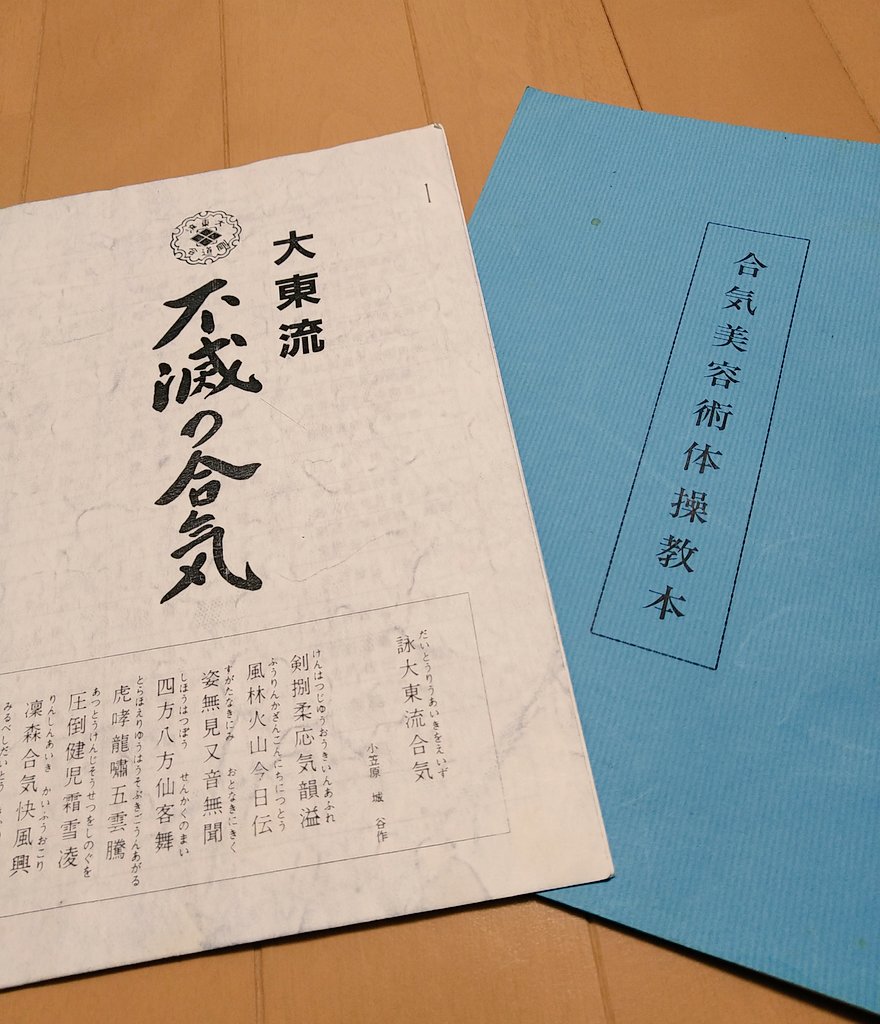 大東流
不滅の合気
だいとうりうあいきをえいず
詠大東流合気
小笠原 城 谷作
けんはつじゆうおうきいんあふれ
剣捌柔応気韻溢
ふうりんかざんこんにちにつとう
風林火山今日伝
すがたなきにみ おとなきにきく
姿無見又音無聞
しほうはつぽう せんかくのまい
四方八方仙客舞
とらほえりゆうはうそぶきごうんあがる
虎哮龍嘯五雲騰
あつとうけんじそうせつをしのぐを
圧倒健児霜雪凌
りんしんあいき かいふうおこり
凜森合気快風興
みるべしだいとう
合気美容術体操教本